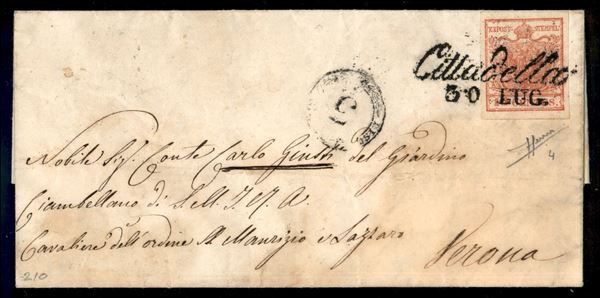 K.K.POST-STEMPEL
Cittadella
30 LUG.
5
Nobile Sig. Conte Carlo Giusti del Giardino
Ciambellano di S. M. I. R. A.
Cavaliere dell'ordine S. Maurizio e Lazzaro
Verona
4
210